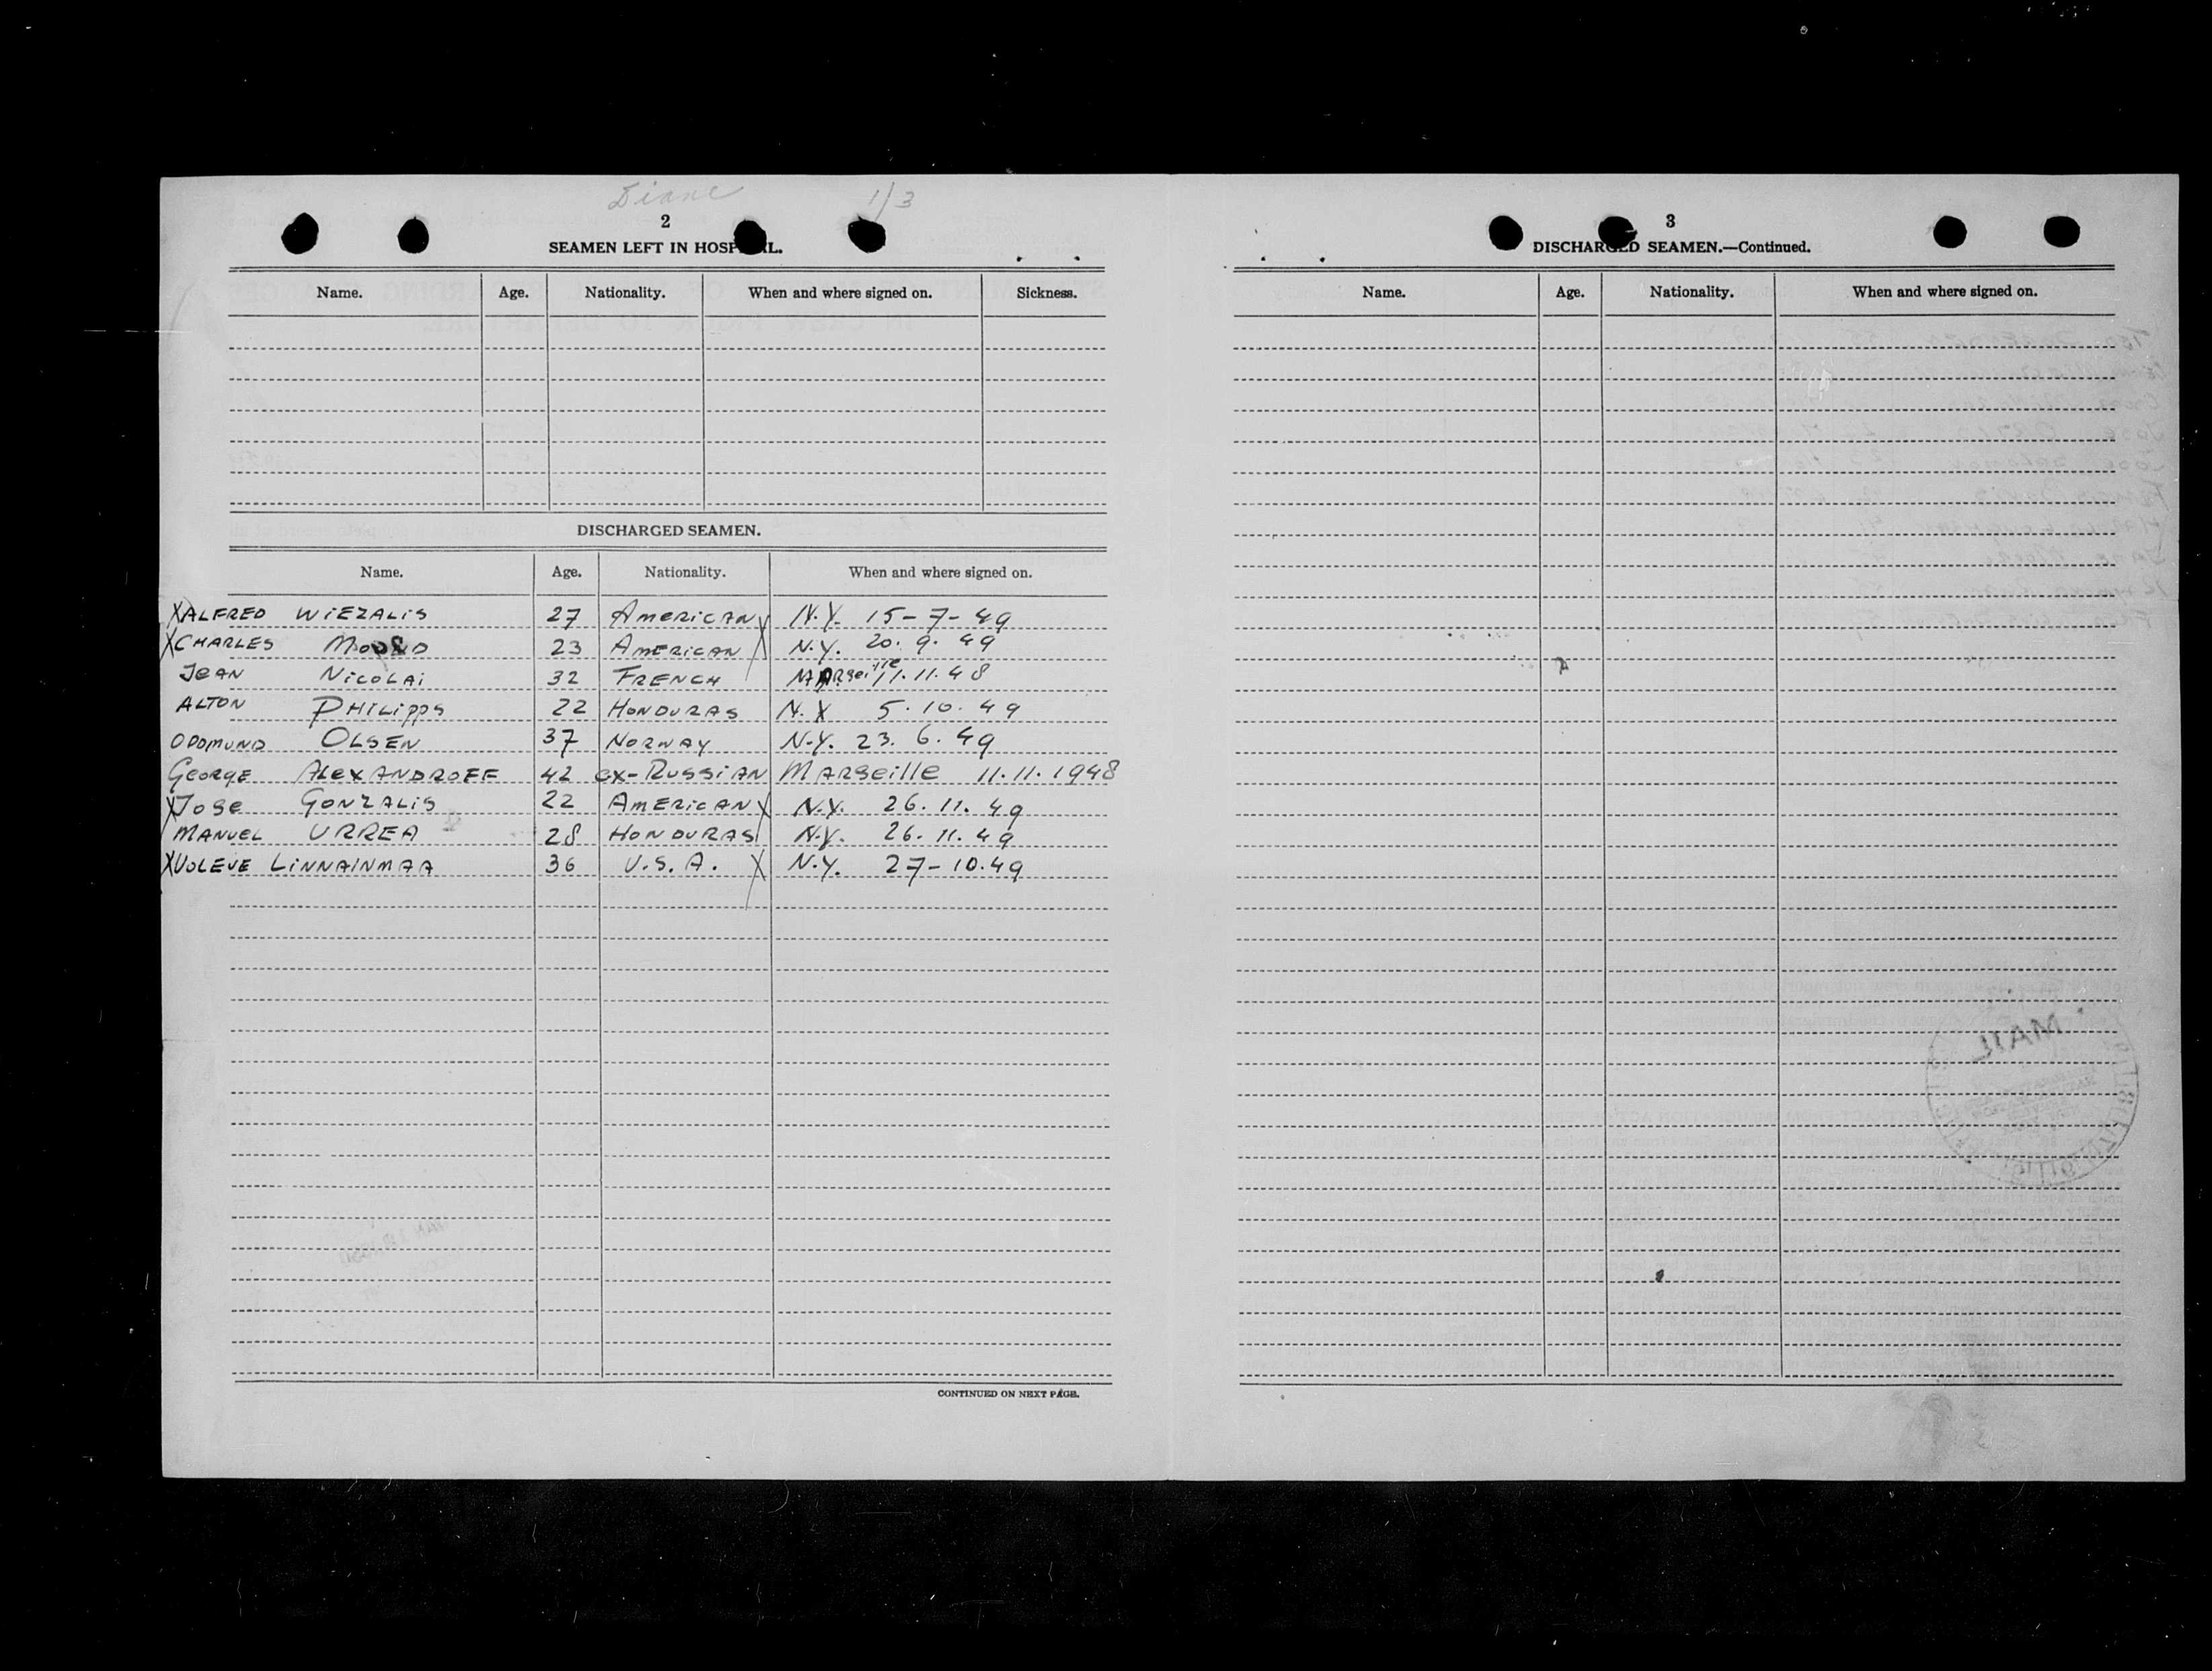 Diane 1/3
2
SEAMEN LEFT IN HOSPITAL.
Name. Age. Nationality. When and where signed on. Sickness.
DISCHARGED SEAMEN.
Name. Age. Nationality. When and where signed on.
XALFRED WIEZALIS 27 AMERICAN X N.Y. 15-7-49
XCHARLES 23 AMERICAN X N.Y. 20.9.49
JEAN NICOLAI 32 FRENCH MARSEILLE 11.11.48
ALTON PHILIPPS 22 HONDURAS N.Y 5.10.49
ODDMUND OLSEN 37 NORWAY N.Y. 23.6.49
GEORGE ALEXANDROFF 42 EX-RUSSIAN MARSEILLE 11.11.1948
XJOSE GONZALIS 22 AMERICAN X N.Y. 26.11.49
MANUEL URREA 28 HONDURAS N.Y. 26.11.49
XUOLEVE LINNAINMAA 36 U.S.A. X N.Y. 27-10.49
CONTINUED ON NEXT PAGE.
3
DISCHARGED SEAMEN.—Continued.
Name. Age. Nationality. When and where signed on.
MAIL